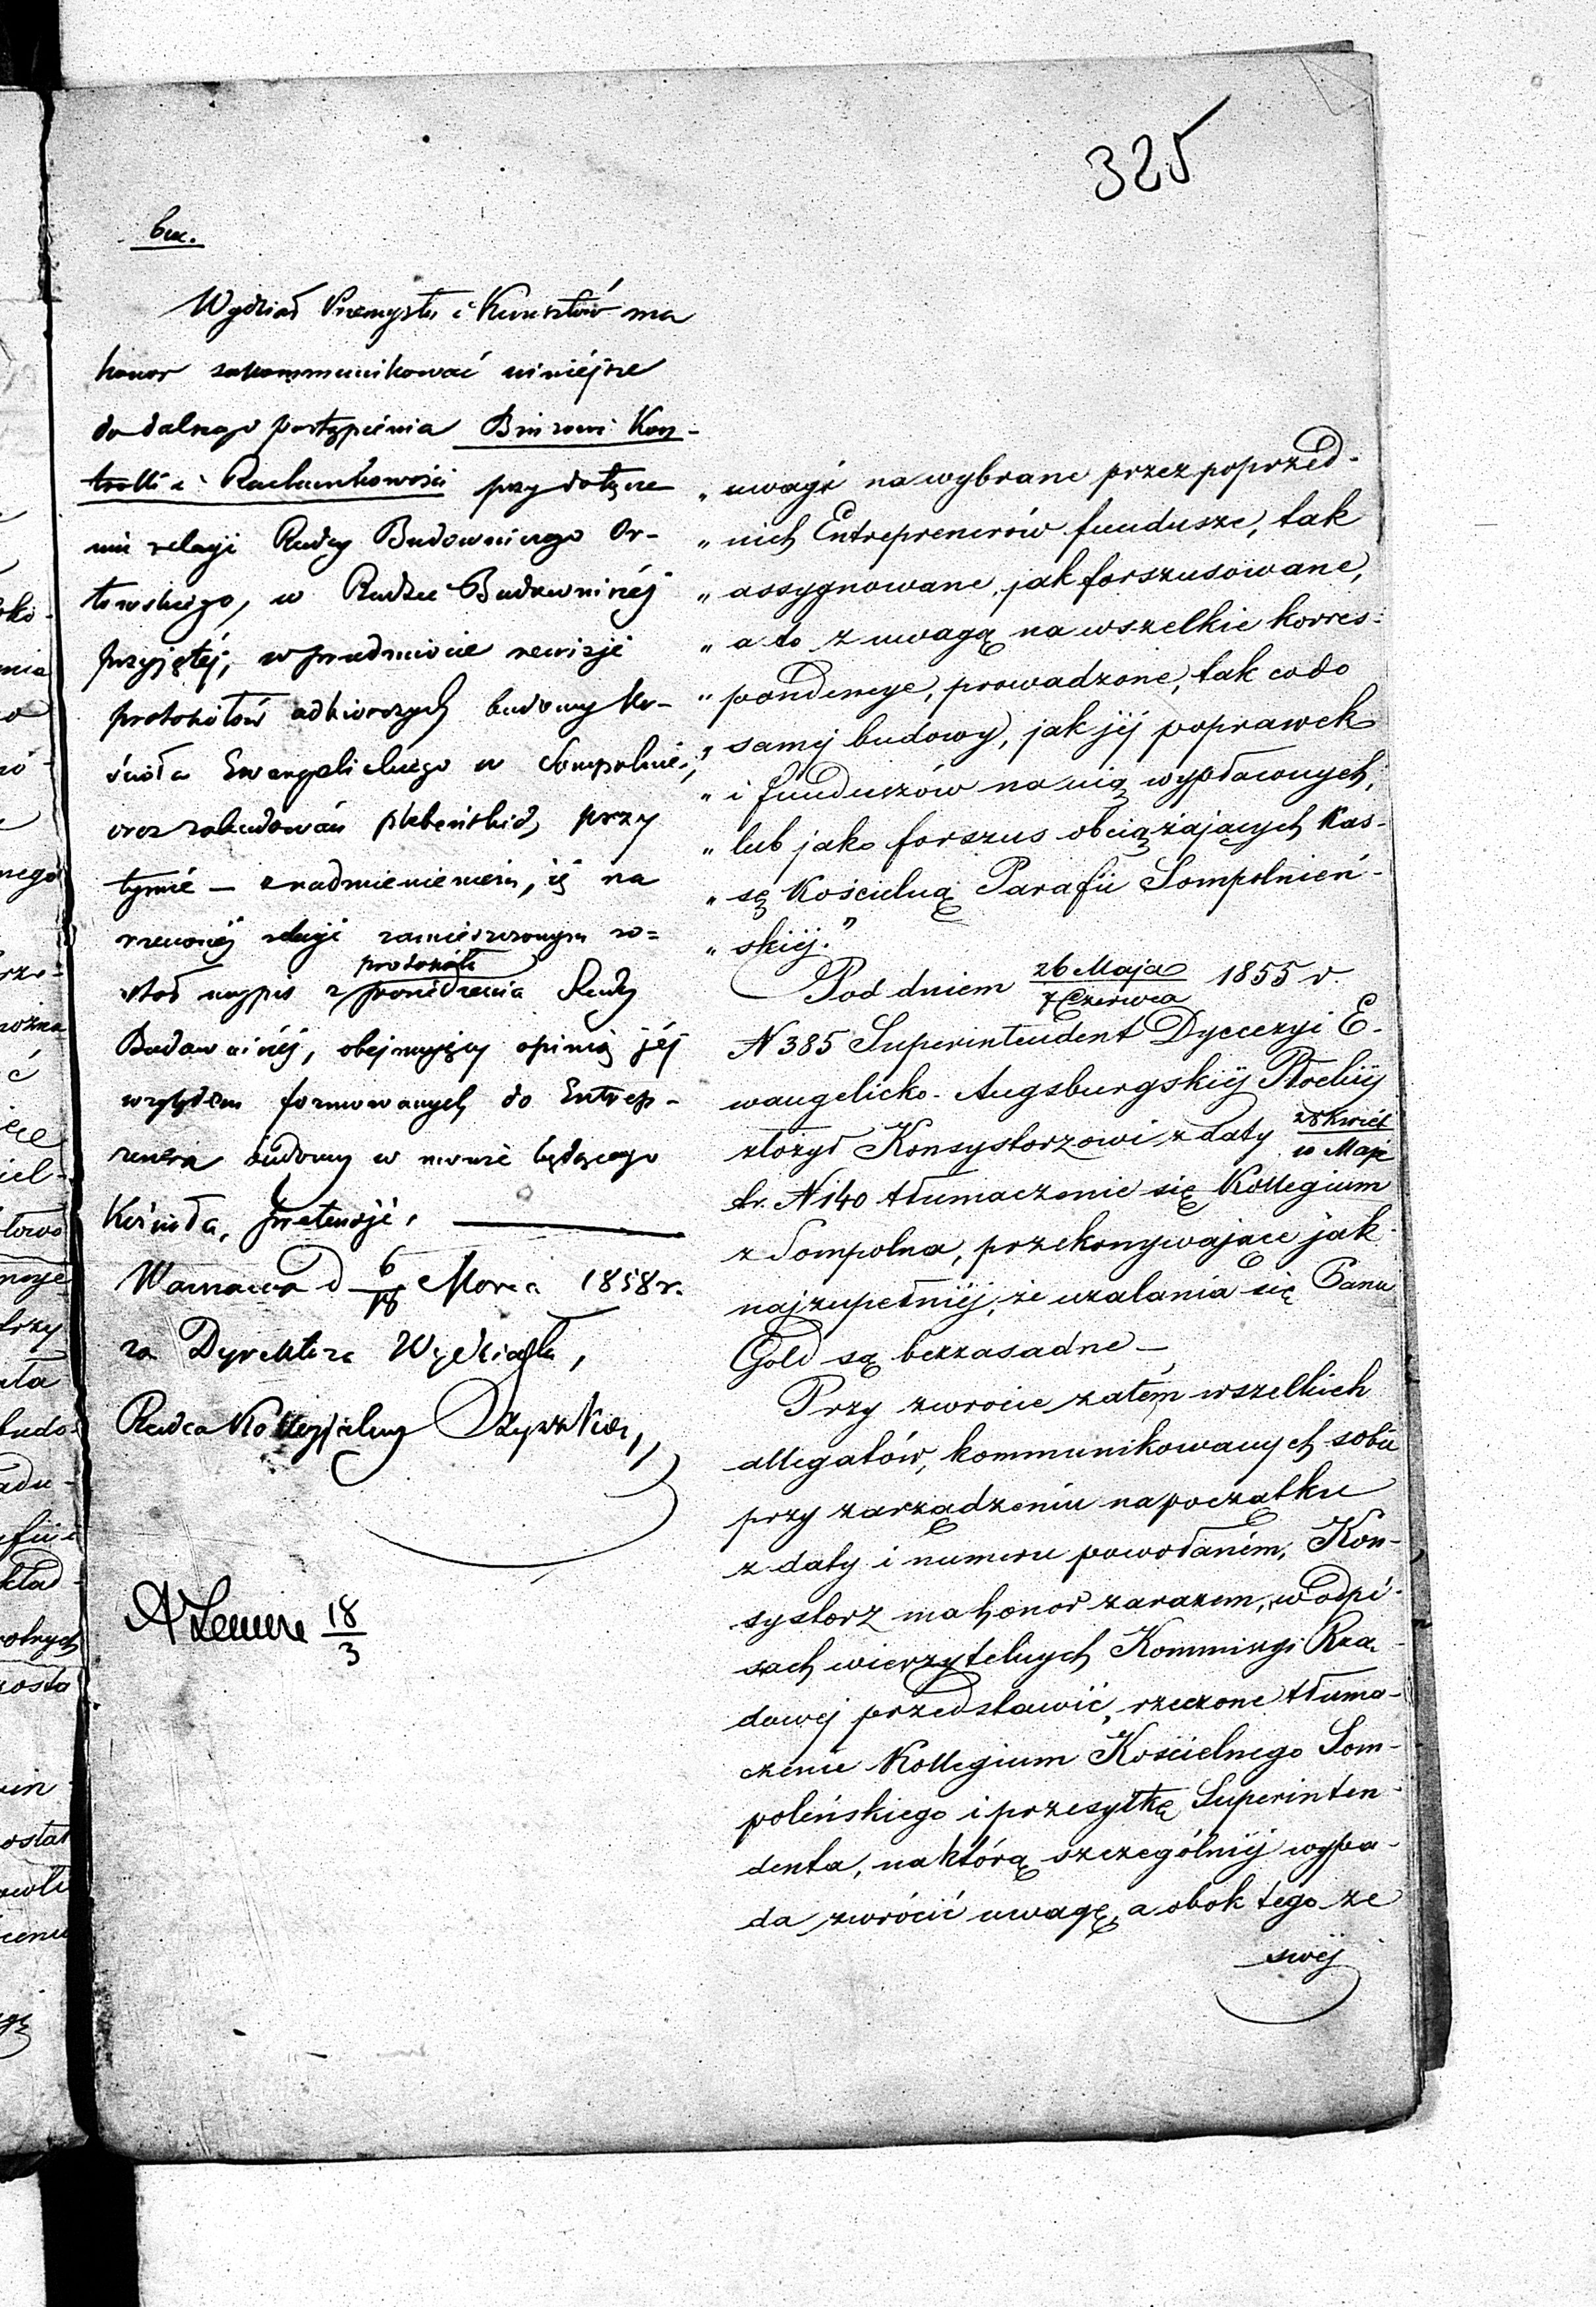 325
Wydział Przemysłu i Kunsztów ma
honor zakommunikować niniejsze
do dalszego postąpienia Biurowi Kon-
trolli i Rachunkowości przy dołącze
niu relacji Radcy Budowniczego Or-
łowskiego, w Radzie Budowniczéj
przyjętéj, w przedmiocie rewizji
protokółów odbiorczych budowy Ko-
ścioła Ewangelickiego w Sompolnie,
oraz zabudowań plebańskich przy
tymże – z nadmienieniem, iż na
rzeczonéj relacji zamieszczonym zo-
stał wypis z protokółu posiedzenia Rady
Budowniczéj, obejmujący opinią jéj
względem formowanych do Entrep-
renera budowy w mowie będącego
Kościoła, pretensji.
Warszawa d 6/18 Marca 1858 r.
za Dyrektora Wydziału,
Radca Kollegjalny
18/3
„ uwagi na wybrane przez poprzed-
„ nich Entreprenerów fundusze, tak
„ assygnowane, jak forszusowane,
„ a to z uwagą na wszelkie korres-
„ pondencye, prowadzone, tak co do
„ samej budowy, jak jéj poprawek
„ i funduszów na nią wypłaconych,
„ lub jako forszus obciążających Kas-
„ sę Kościelną Parafii Sompolnień-
„ skiéj."
Pod dniem 26 Maja/7 Czerwca 1855 r.
N 385 Superintendent Dyecezyi E-
wangelicko-Augsburgskiéj Płockiéj
złożył Konsystorzowi z daty 28 Kwiet/10 Maja
t.r. N 140 tłumaczenie się Kollegium
z Sompolna, przekonywające jak
najzupełniéj, że użalania się Pana
Gold są bezzasadne —
Przy zwrocie zatém wszelkich
allegatów, kommunikowanych sobie
przy zarządzeniu na początku
z daty i numeru powołaném, Kon-
systorz ma honor zarazem, w odpi-
sach wierzytelnych Kommissyi Rzą-
dowéj przedstawić, rzeczone tłuma-
czenie Kollegium Kościelnego Som-
poleńskiego i przesyłkę Superinten-
denta, na którą szczególniéj wypa-
da zwrócić uwagę, a obok tego ze
swéj